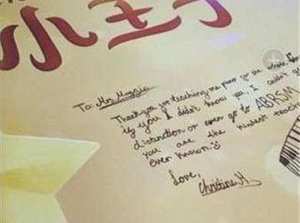 小王子
To: Mrs Maggie
Thank you for teaching me piano for the whole
if you I didn't know you, I couldn't
distinction or even go to ABRSM
you are the kindest teacher
ever known
Love,
Christine M